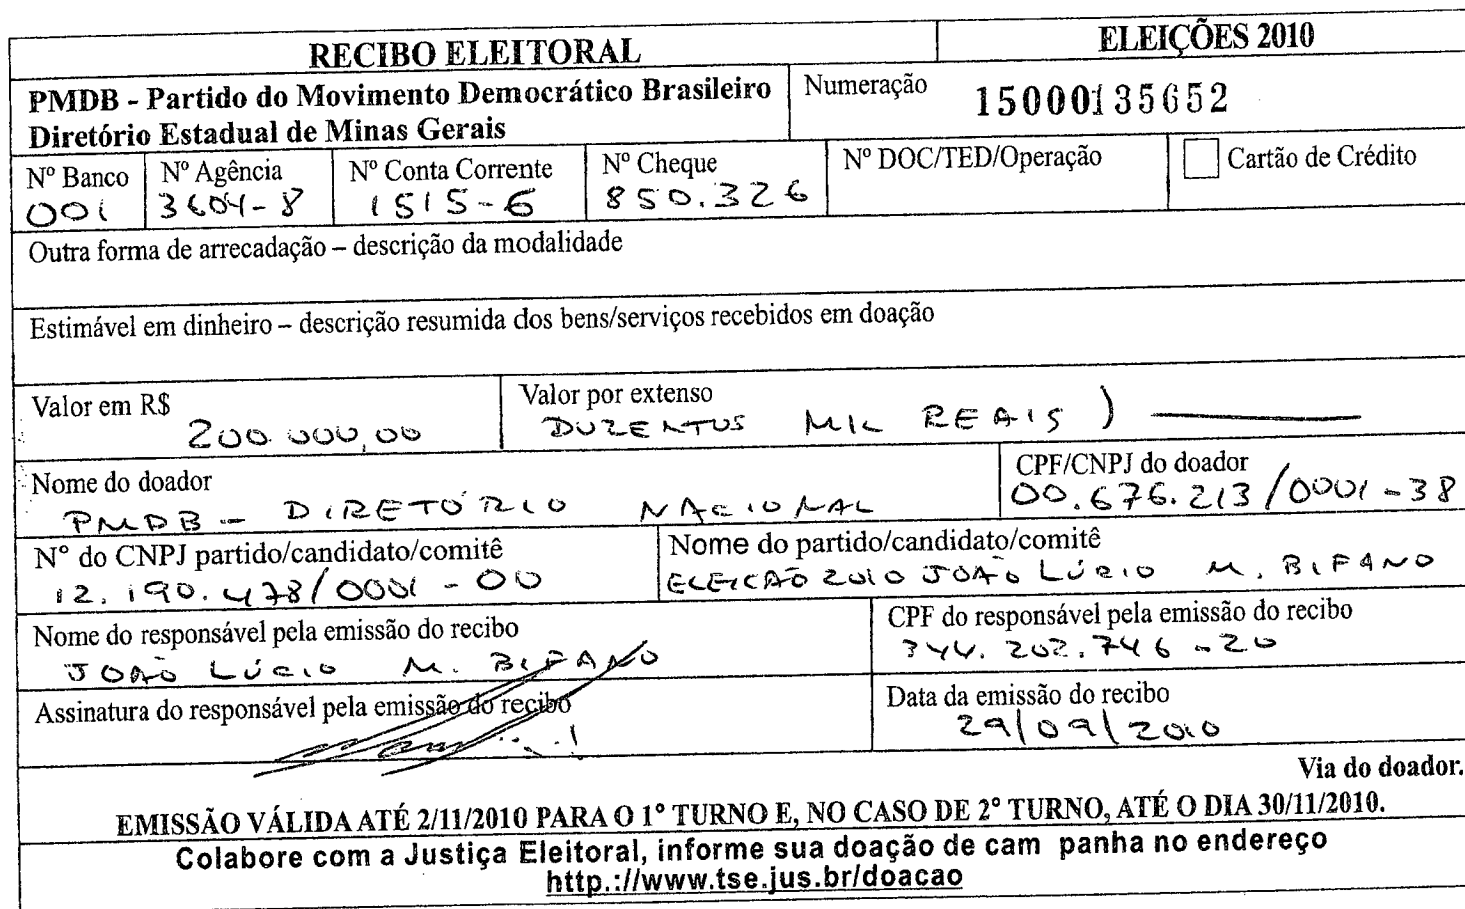 RECIBO ELEITORAL
ELEIÇÕES 2010
PMDB - Partido do Movimento Democrático Brasileiro
Diretório Estadual de Minas Gerais
Numeração
15000135652
Nº Banco
001
Nº Agência
3604-8
Nº Conta Corrente
1515-6
Nº Cheque
850.326
Nº DOC/TED/Operação
Cartão de Crédito
Outra forma de arrecadação – descrição da modalidade
Estimável em dinheiro – descrição resumida dos bens/serviços recebidos em doação
Valor em R$
200.000,00
Valor por extenso
DUZENTOS MIL REAIS )
Nome do doador
PMDB - DIRETÓRIO NACIONAL
CPF/CNPJ do doador
00.676.213/0001-38
N° do CNPJ partido/candidato/comitê
12.190.478/0001-00
Nome do partido/candidato/comitê
ELEICÃO 2010 JOÃO LÚCIO M. BIFANO
Nome do responsável pela emissão do recibo
JOÃO LÚCIO M. BIFANO
CPF do responsável pela emissão do recibo
344.202.746-20
Assinatura do responsável pela emissão do recibo
Data da emissão do recibo
29/09/2010
Via do doador.
EMISSÃO VÁLIDA ATÉ 2/11/2010 PARA O 1º TURNO E, NO CASO DE 2º TURNO, ATÉ O DIA 30/11/2010.
Colabore com a Justiça Eleitoral, informe sua doação de cam panha no endereço
http.://www.tse.jus.br/doacao